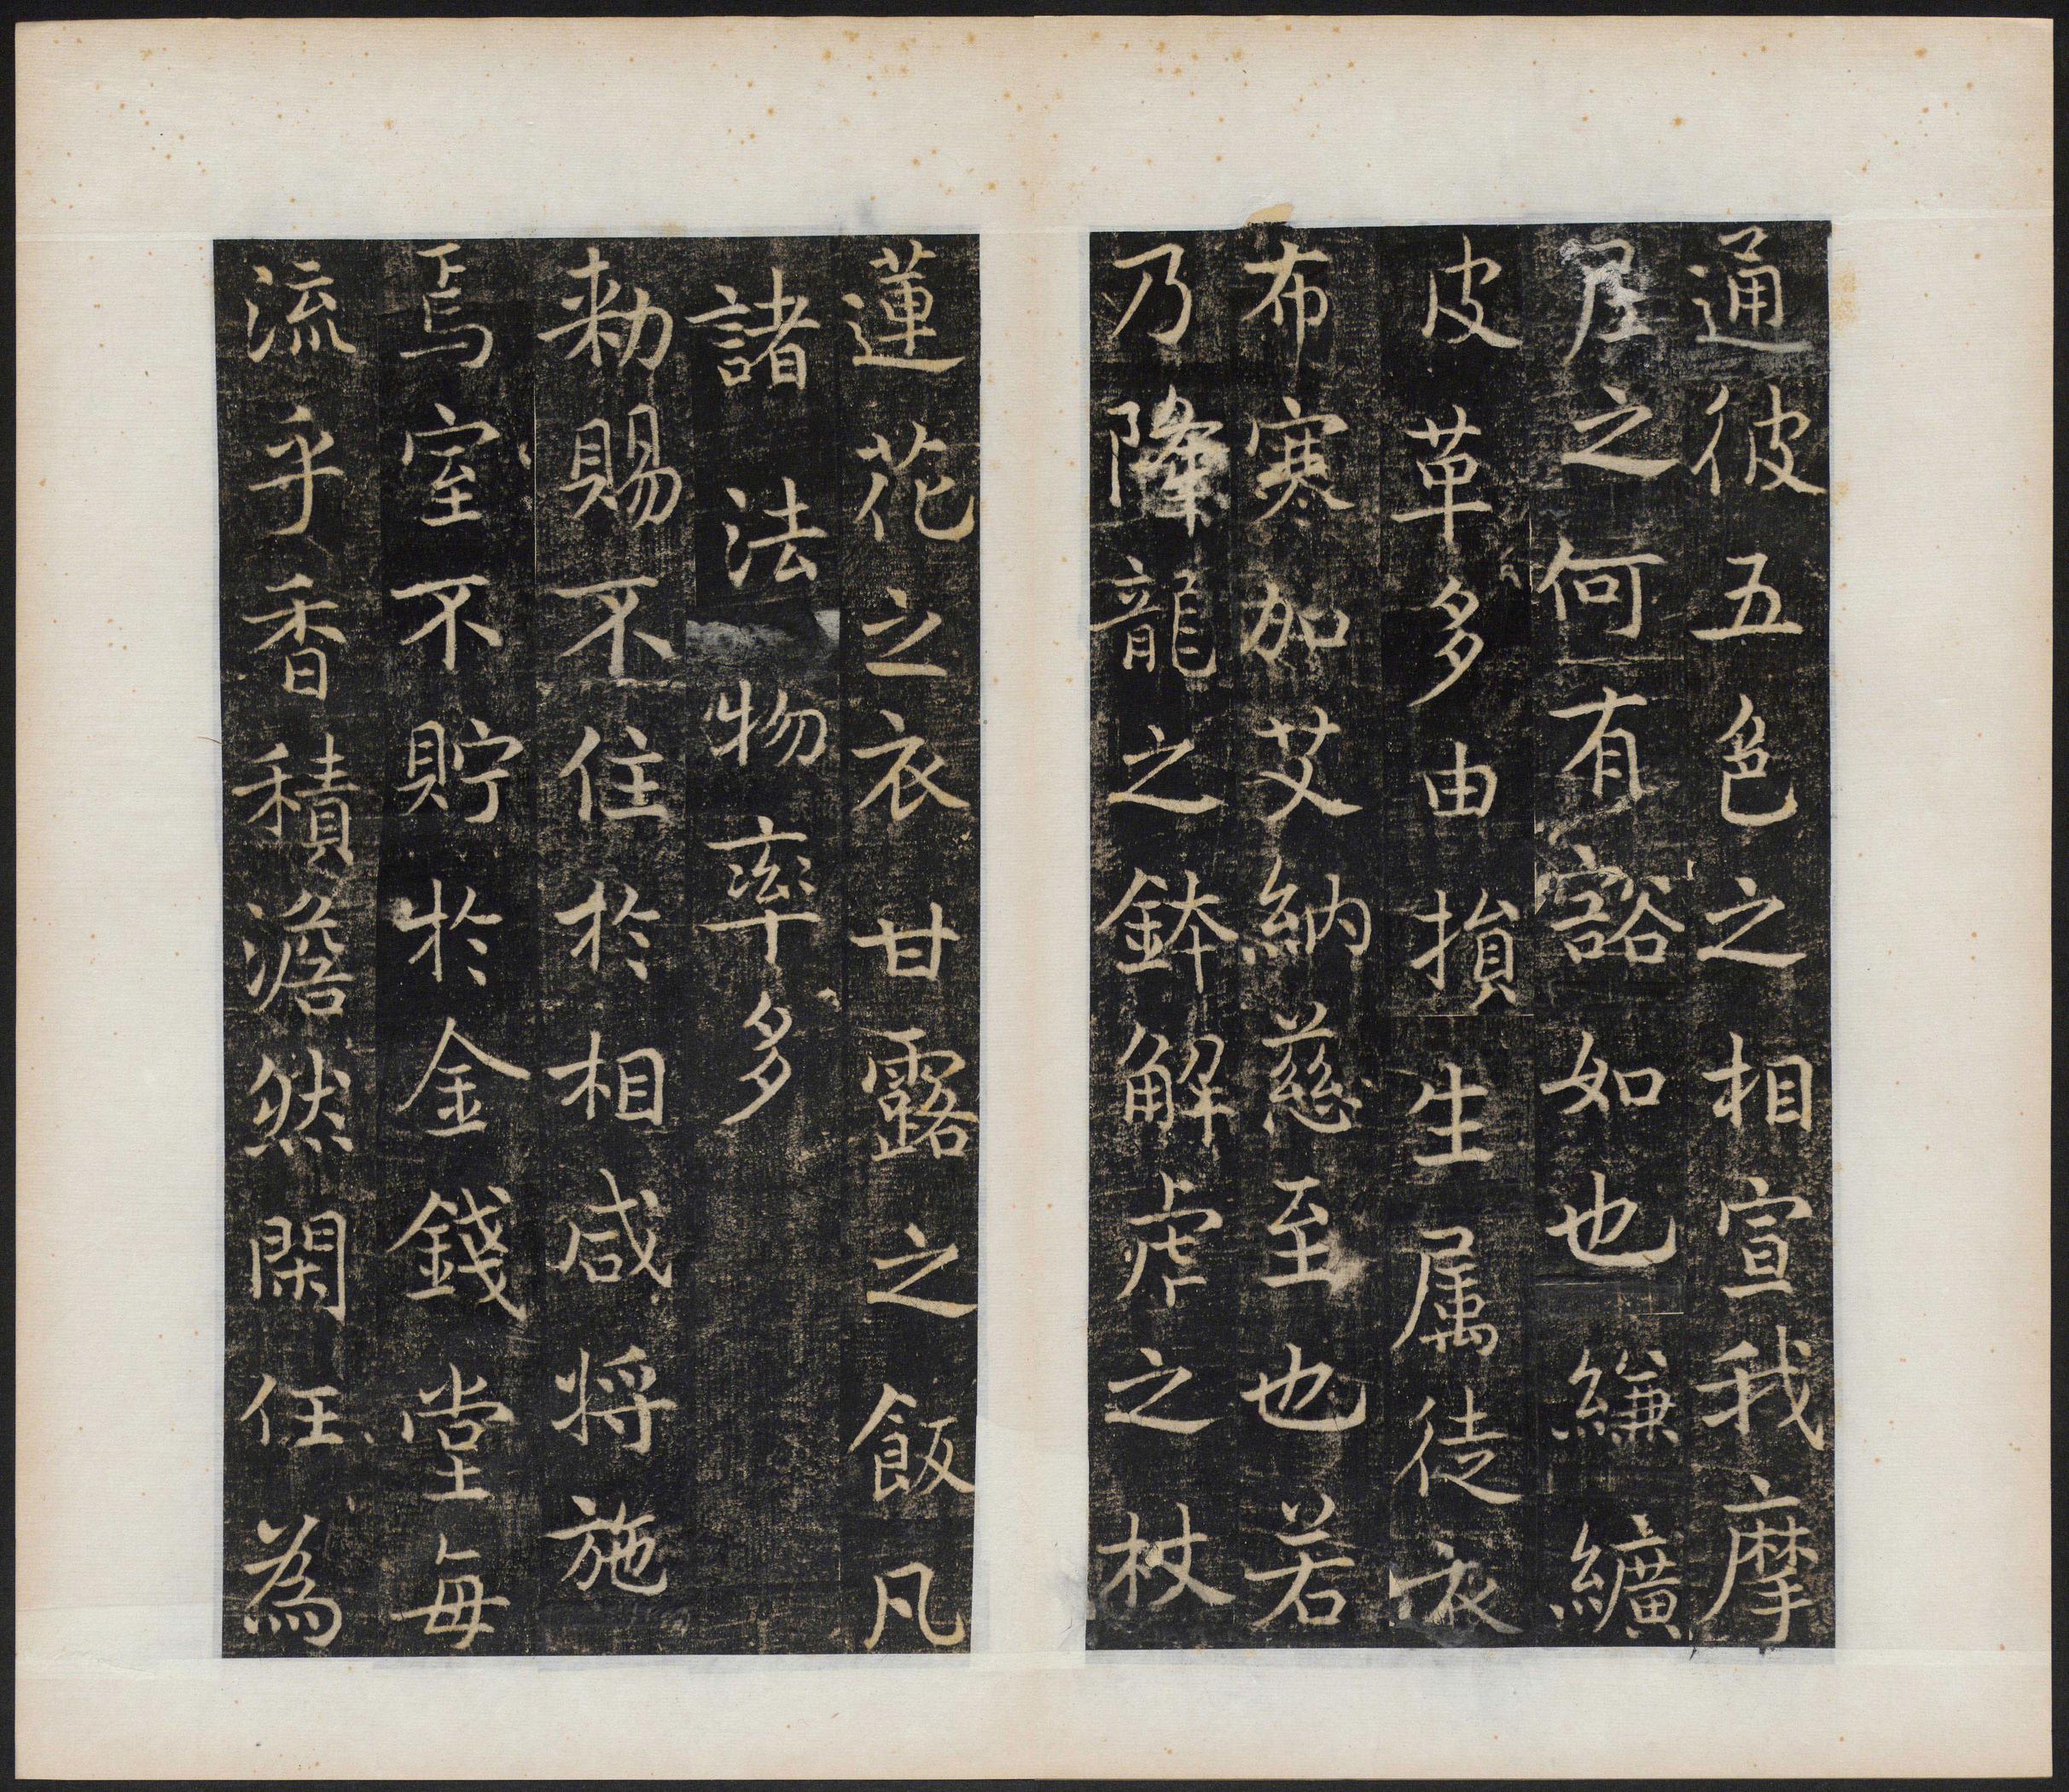 通彼五色之相宣我摩
之何有豁如也縑纊
皮革多由損生属徒衣
布寒加艾納慈至也若
乃降龍之鉢解虎之杖
蓮花之衣甘露之飯凡
諸法物率多
勅賜不住於相咸将施
焉室不貯於金錢堂每
流乎香積澹然閑任為